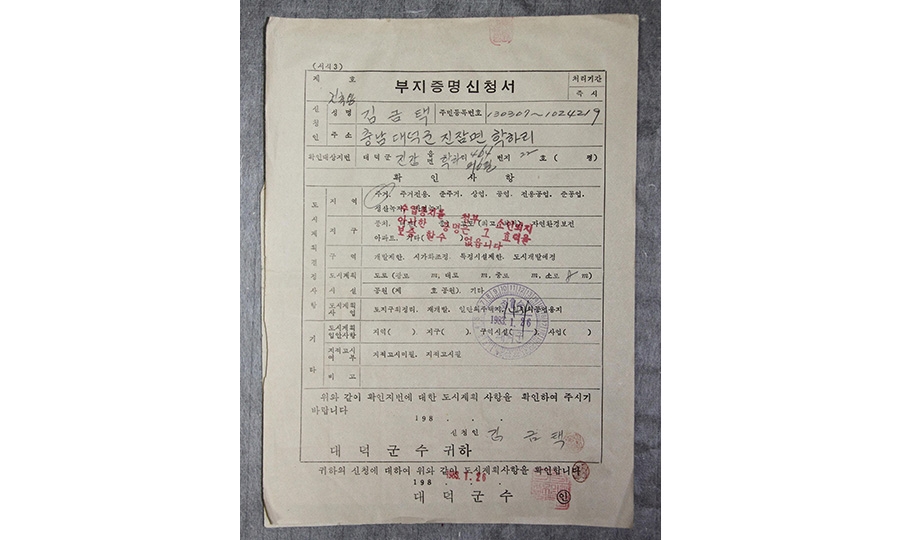 (서식3)
제 호
부지증명신청서
처리기간
즉 시
신청인
성명
김금택
주민등록번호
130307~1024219
주 소
충남 대덕군 진잠면 학하리
확인대상지번 대덕군 진잠 읍면 학하리 번지 호 ( 평)
확 인 사 항
도시계획결정사항
지 역
주거, 주거전용, 준주거, 상업, 공업, 전용공업, 준공업,
생산녹지, 자연녹지
수입증지를 첨부 소인되지
지 구
자연환경보전
보증 증명은 그 효력을
아파트, 기타( )
할수 없읍니다
구 역
개발제한, 시가화조정, 특정시설제한, 도시개발예정
도시계획시설
도로 (광로 m, 대로 m, 중로 m, 소로 8 m)
공원 (제 호 공원), 기타
기타
도시계획사업
토지구획정리, 재개발, 일단의주택지, 일단의공업용지
1983. 1. 26
도시계획입안사항
지역( ) 지구( ), 구역시설( ), 사업( )
지적고시여부
지적고시미필, 지적고시필
비 고
위와 같이 확인지번에 대한 도시계획 사항을 확인하여 주시기
바랍니다
198 . . .
신청인 김 금 택
대 덕 군 수 귀하
귀하의 신청에 대하여 위와 같이 도시계획사항을 확인합니다
198 . . .
1983. 1. 26
대 덕 군 수 인